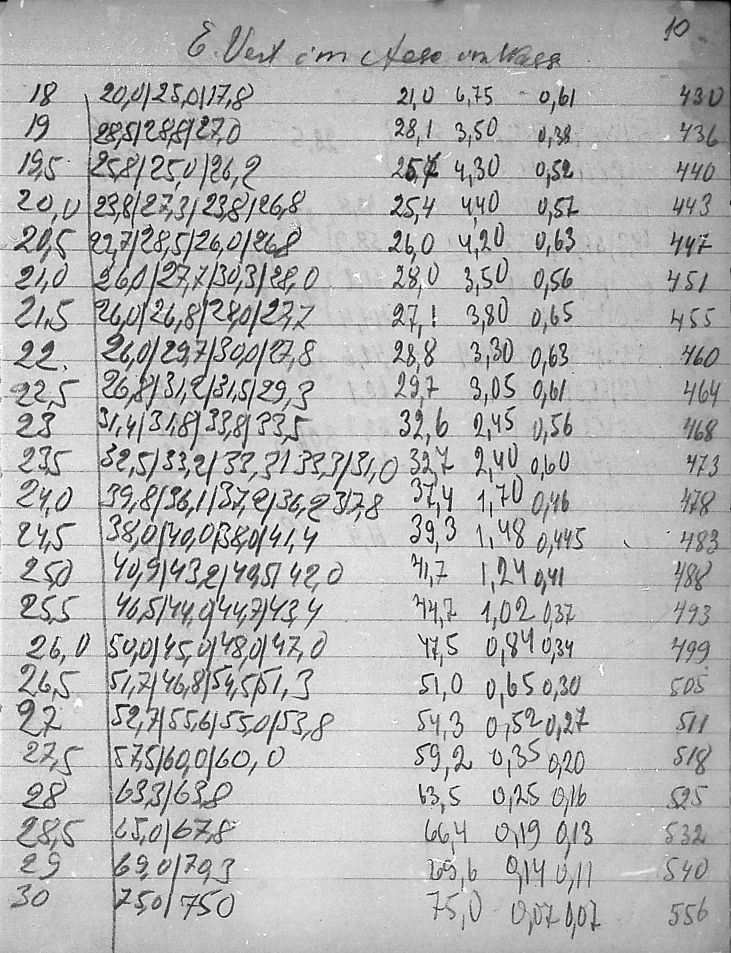 10
E. Vert im
18 20,0/25,0/17,8 21,0 6,75 0,61 430
19 28,5/28,8/27,0 28,1 3,50 0,38 436
19,5 25,8/25,0/26,2 25,7 4,30 0,52 440
20,0 23,8/27,3/23,8/26,8 25,4 4,40 0,57 443
20,5 22,7/28,5/26,0/26,8 26,0 4,20 0,63 447
21,0 26,0/27,7/30,3/28,0 28,0 3,50 0,56 451
21,5 26,0/26,8/28,0/27,7 27,1 3,80 0,65 455
22. 26,0/29,7/30,0/27,8 28,8 3,30 0,63 460
22,5 26,8/31,2/31,5/29,3 29,7 3,05 0,61 464
23 31,4/31,8/33,8/33,5 32,6 2,45 0,56 468
23,5 32,5/33,2/33,3/33,3/31,0 32,7 2,40 0,60 473
24,0 39,8/36,1/37,2/36,2/37,8 37,4 1,70 0,46 478
24,5 38,0/40,0/38,0/41,4 39,3 1,48 0,445 483
25,0 40,9/43,2/40,5/42,0 41,7 1,24 0,41 488
25,5 46,5/44,0/44,7/43,4 44,7 1,02 0,37 493
26,0 50,0/45,0/48,0/47,0 47,5 0,84 0,34 499
26,5 51,7/46,8/54,5/51,3 51,0 0,65 0,30 505
27 52,7/55,6/55,0/53,8 54,3 0,52 0,27 511
27,5 57,5/60,0/60,0 59,2 0,35 0,20 518
28 63,3/63,8 63,5 0,25 0,16 525
28,5 65,0/67,8 66,4 0,19 0,13 532
29 69,0/70,3 69,6 0,14 0,11 540
30 75,0/75,0 75,0 0,07 0,07 556